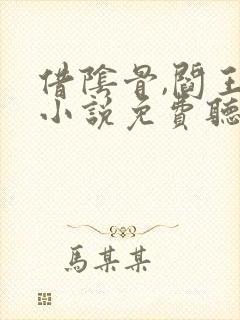 借陰骨,閻王
小說免費聽
馬某某